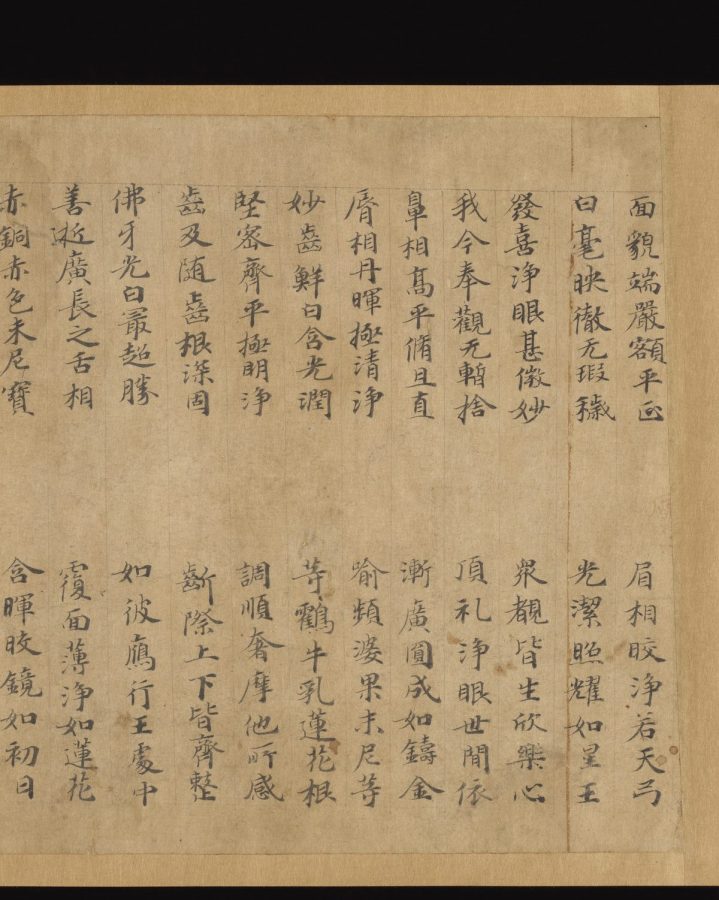 面貌端嚴額平正　眉相皎淨若天弓
白毫映徹无瑕穢　光潔照耀如星王
發喜淨眼甚微妙　衆覩皆生欣樂心
我今奉觀无暫捨　頂礼淨眼世間依
鼻相高平脩且直　漸廣圓成如鑄金
脣相丹暉極清淨　喻頻婆果末尼等
妙齒鮮白含光潤　等鸖牛乳蓮花根
堅密齊平極明淨　調順奢摩他所感
齒及隨齒根深固　齗際上下皆齊整
佛牙光白冣超勝　如彼鴈行王處中
善逝廣長之舌相　覆面薄淨如蓮花
赤銅赤色末尼寶　含暉皎鏡如初日